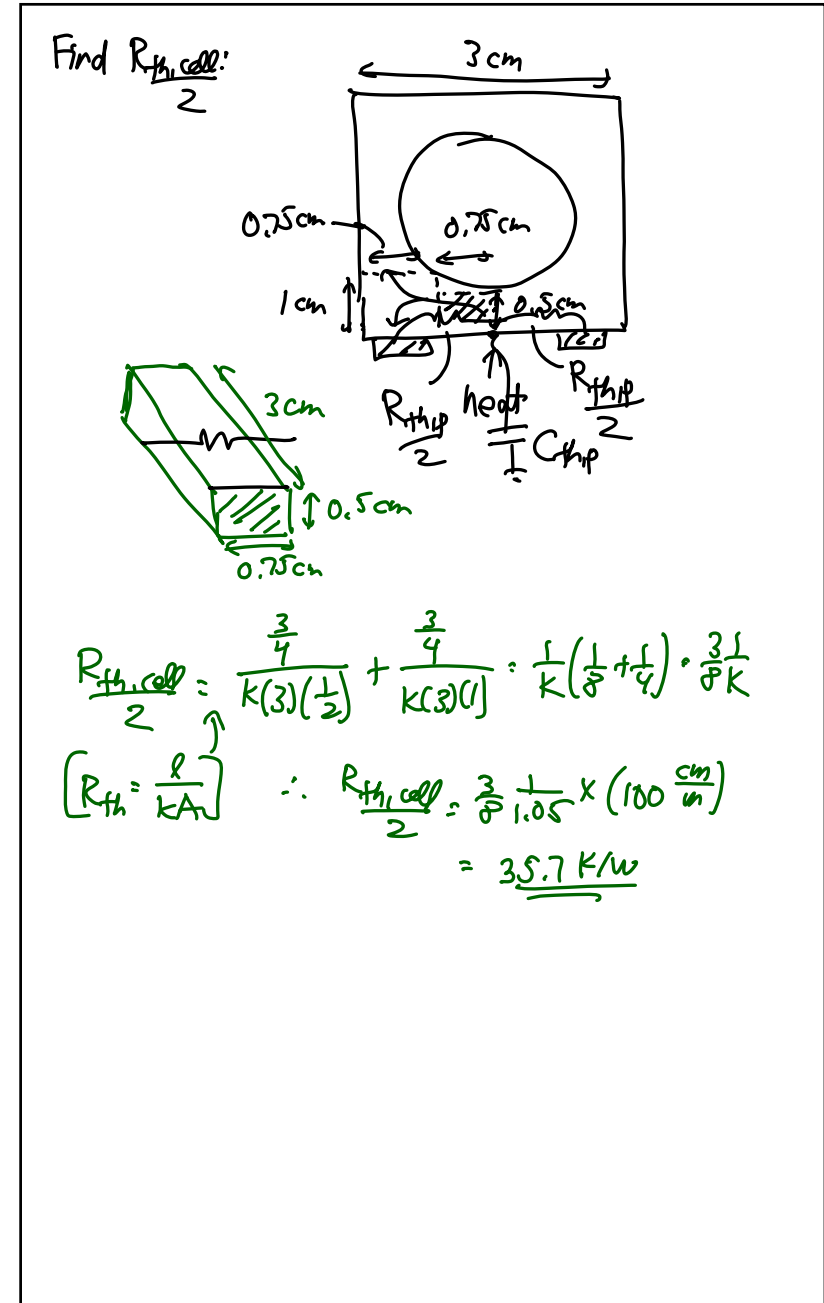 Find R_th,cell/2:
3 cm
0.75cm
0.75cm
1 cm
0.5cm
R_thp/2
heat
R_thp/2
C_thp
3cm
0.5cm
0.75cm
R_th,cell/2 = (3/4)/(K(3)(1/2)) + (3/4)/(K(3)(1)) = 1/K (1/8 + 1/4) = 3/8 1/K
[R_th = l/(kA)] ∴ R_th,cell/2 = 3/8 1/1.05 × (100 cm/m)
= 35.7 K/W